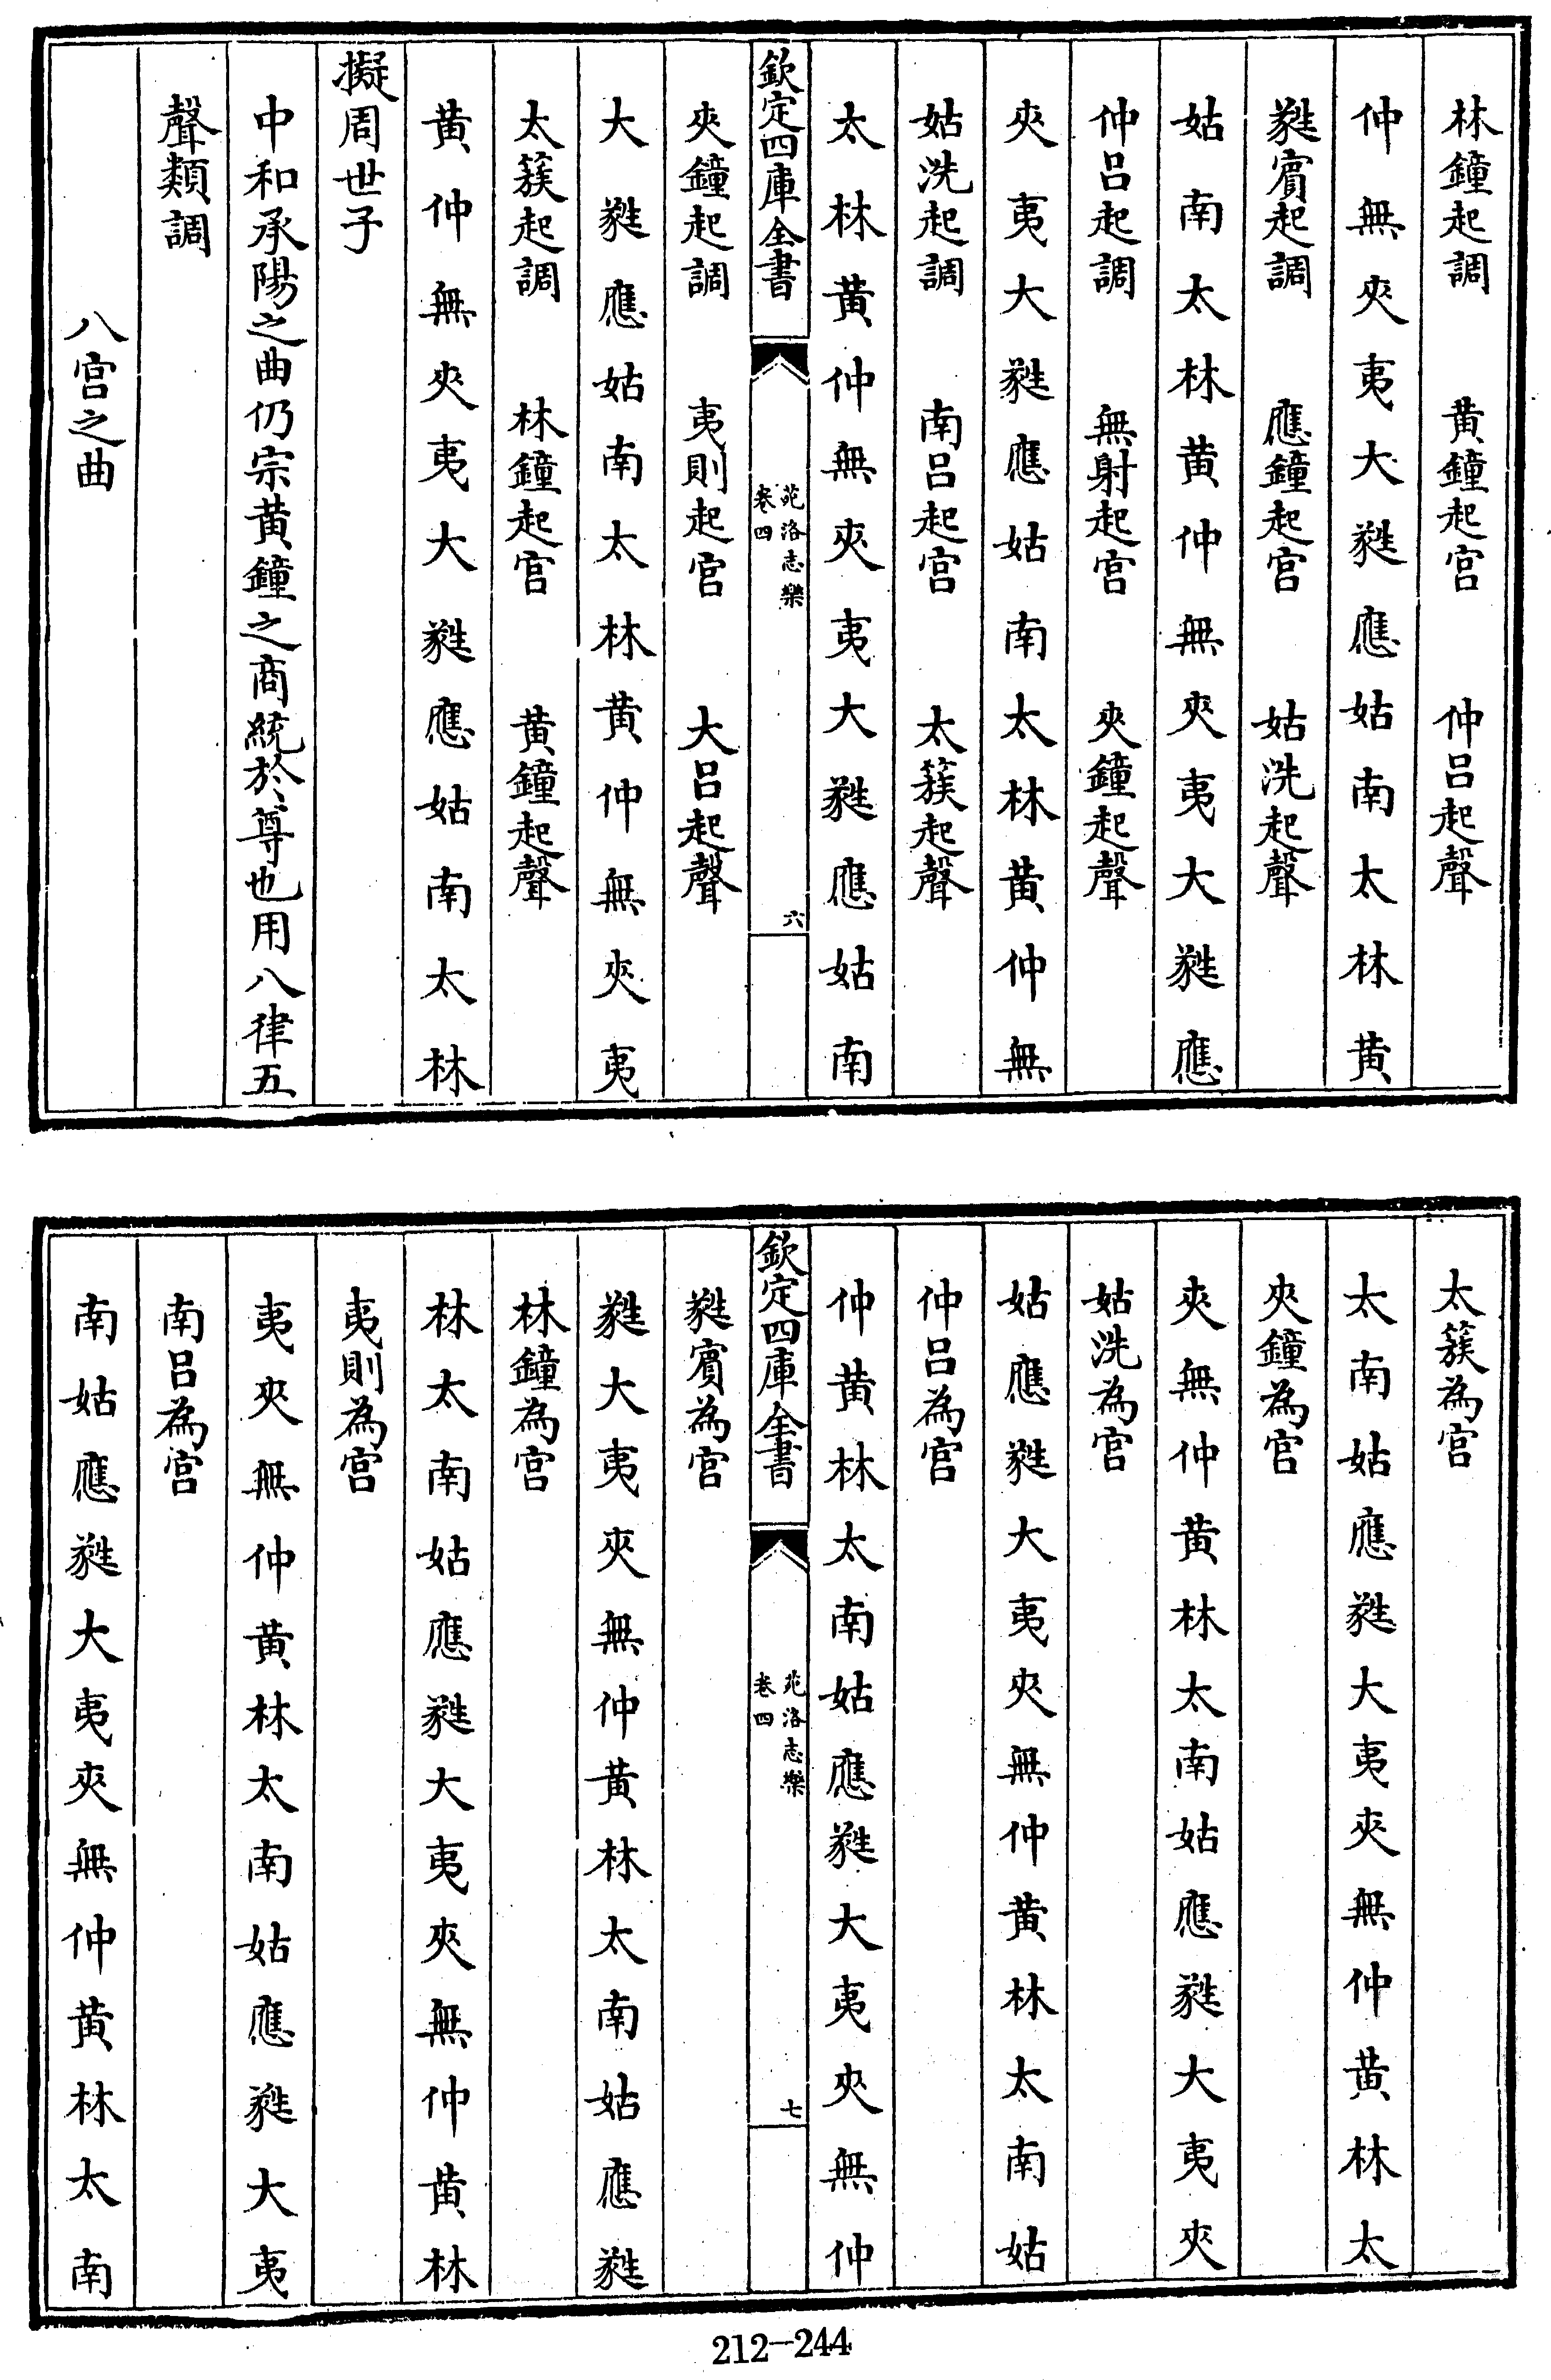 林鐘起調　黄鐘起宫　仲吕起聲
仲無夾夷大蕤應姑南太林黄
蕤賔起調　應鐘起宫　姑洗起聲
姑南太林黄仲無夾夷大蕤應
仲吕起調　無射起宫　夾鐘起聲
夾夷大蕤應姑南太林黄仲無
姑洗起調　南吕起宫　太簇起聲
太林黄仲無夾夷大蕤應姑南
欽定四庫全書　苑洛志樂　卷四　六
夾鐘起調　夷則起宫　大吕起聲
大蕤應姑南太林黄仲無夾夷
太簇起調　林鐘起宫　黄鐘起聲
黄仲無夾夷大蕤應姑南太林
擬周世子
中和承陽之曲仍宗黄鐘之商統於尊也用八律五
聲類調
八宫之曲
太簇為宫
太南姑應蕤大夷夾無仲黄林太
夾鐘為宫
夾無仲黄林太南姑應蕤大夷夾
姑洗為宫
姑應蕤大夷夾無仲黄林太南姑
仲吕為宫
仲黄林太南姑應蕤大夷夾無仲
欽定四庫全書　苑洛志樂　卷四　七
蕤賔為宫
蕤大夷夾無仲黄林太南姑應蕤
林鐘為宫
林太南姑應蕤大夷夾無仲黄林
夷則為宫
夷夾無仲黄林太南姑應蕤大夷
南吕為宫
南姑應蕤大夷夾無仲黄林太南
212-244